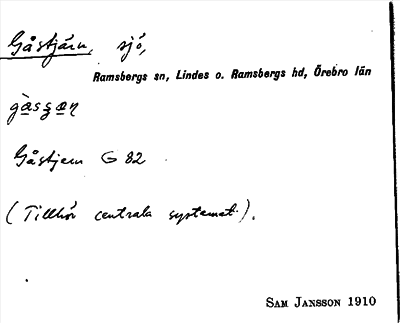 Gåstjärn, sjö,
Ramsbergs sn, Lindes o. Ramsbergs hd, Örebro län
Gåstjern G 82
(Tillhör centrala systemat.).
SAM JANSSON 1910